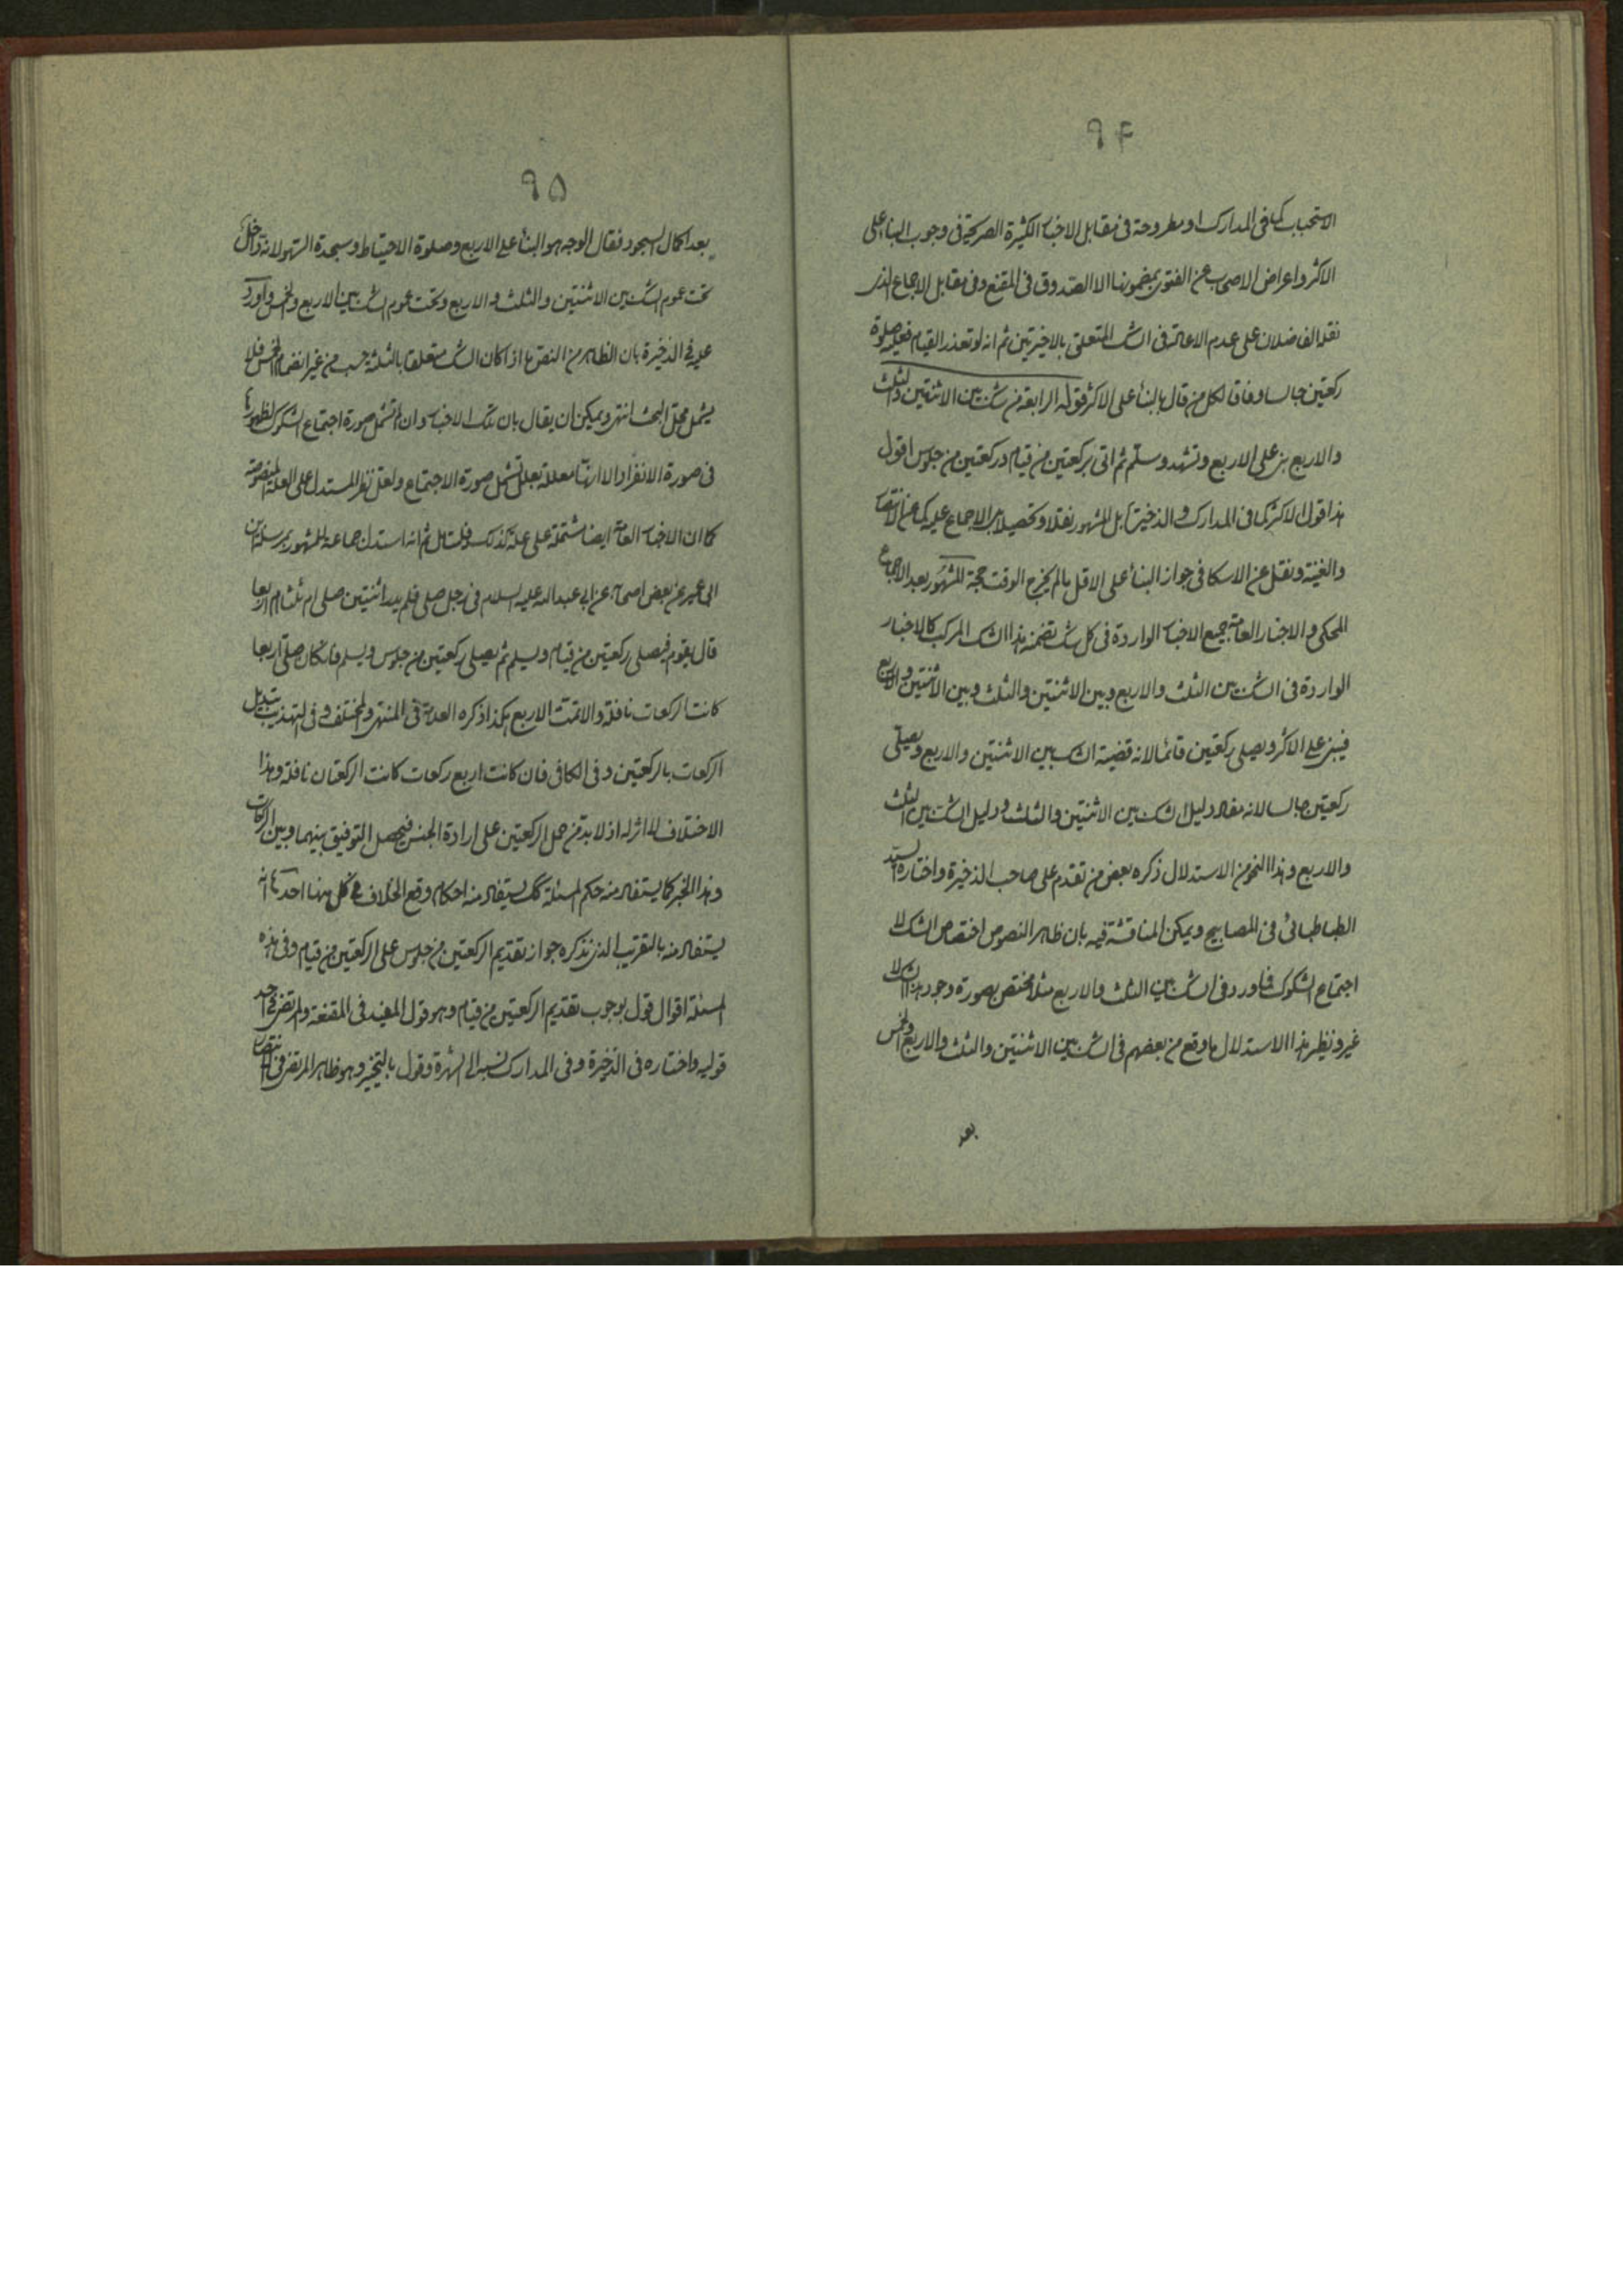 ٩۴
الاستحباب كما فى المدارك او مطروحة فى مقابل الاخبار الكثيرة الصريحة فى وجوب البناء على
الاكثر واعراض الاصحاب عن الفتوى بمضمونها الا الصدوق فى المقنع وفى مقابل الاجماع الذى
نقله الفاضلان على عدم الاعادة فى الشك المتعلق بالاخيرتين ثم انه لو تعذر القيام فعليه صلوة
ركعتين جالسا وفاقا لكل من قال بالبناء على الاكثر قوله الرابعة من شك بين الاثنتين والثلث
والاربع بنى على الاربع وتشهد وسلم ثم اتى بركعتين من قيام وركعتين من جلوس اقول
هذا قول الاكثر كما فى المدارك والذخيرة بل المشهور نقلا وتحصيلا بل الاجماع عليه كما عن الانتصار
والغنية ونقل عن الاسكافى جواز البناء على الاقل ما لم يخرج الوقت حجة المشهور بعد الاجماع
المحكى والاخبار العامة جميع الاخبار الواردة فى كل شك تضمنه هذا الشك المركب كالاخبار
الواردة فى الشك بين الثلث والاربع وبين الاثنتين والثلث وبين الاثنتين والاربع
فيبنى على الاكثر ويصلى ركعتين قائما لانه قضية الشك بين الاثنتين والاربع ويصلى
ركعتين جالسا لانه مفاد دليل الشك بين الاثنتين والثلث ودليل الشك بين الثلث
والاربع وهذا النحو من الاستدلال ذكره بعض من تقدم على صاحب الذخيرة واختاره السيد
الطباطبائى فى المصابيح ويمكن المناقشة فيه بان ظاهر النصوص اختصاص الشك لا
اجتماع الشكوك فما ورد فى الشك بين الثلث والاربع مثلا مختص بصورة وجود هذا الشك لا
غير ونظير هذا الاستدلال ما وقع من بعضهم فى الشك بين الاثنتين والثلث والاربع والخمس
بعد
٩۵
بعد اكمال السجود فقال الوجه هو البناء على الاربع وصلوة الاحتياط وسجدة السهو لانه داخل
تحت عموم الشك بين الاثنتين والثلث والاربع وتحت عموم الشك بين الاربع والخمس واورد
عليه فى الذخيرة بان الظاهر من النص ما اذا كان الشك متعلقا بالثلثة حسب من غير انضمام الخمس فلا
يشمل محل البحث انتهى ويمكن ان يقال بان تلك الاخبار وان لم تشمل صورة اجتماع الشكوك لظهورها
فى صورة الانفراد الا انها معللة بعلل تشمل صورة الاجتماع ولعل نظر المستدل على العلة المنصوصة
كما ان الاخبار العامة ايضا مشتملة على علة كذلك فليتامل ثم انه استدل جماعة للمشهور بمرسلة ابن
ابى عمير عن بعض اصحابه عن ابى عبد الله عليه السلام فى رجل صلى فلم يدر اثنتين صلى ام ثلثا ام اربعا
قال يقوم فيصلى ركعتين من قيام ويسلم ثم يصلى ركعتين من جلوس ويسلم فان كان صلى اربعا
كانت الركعات نافلة والا تمت الاربع هكذا ذكره العلامة فى المنتهى والمختلف وفى التهذيب بتبديل
الركعات بالركعتين وفى الكافى فان كانت اربع ركعات كانت الركعتان نافلة وهذا
الاختلاف لا اثر له اذ لا بد من حمل الركعتين على ارادة الجنس فيحصل التوفيق بينهما وبين الركعات
وهذا الخبر كما يستفاد منه حكم المسئلة كك يستفاد منه احكام وقع الخلاف فى كل منها احدها انه
يستفاد منه بالتقريب الذى نذكره جواز تقديم الركعتين من جلوس على الركعتين من قيام وفى هذه
المسئلة اقوال قول بوجوب تقديم الركعتين من قيام وهو قول المفيد فى المقنعة والمرتضى فى احد
قوليه واختاره فى الذخيرة وفى المدارك نسبه الى الشهرة وقول بالتخيير وهو ظاهر المرتضى فى الانتصار